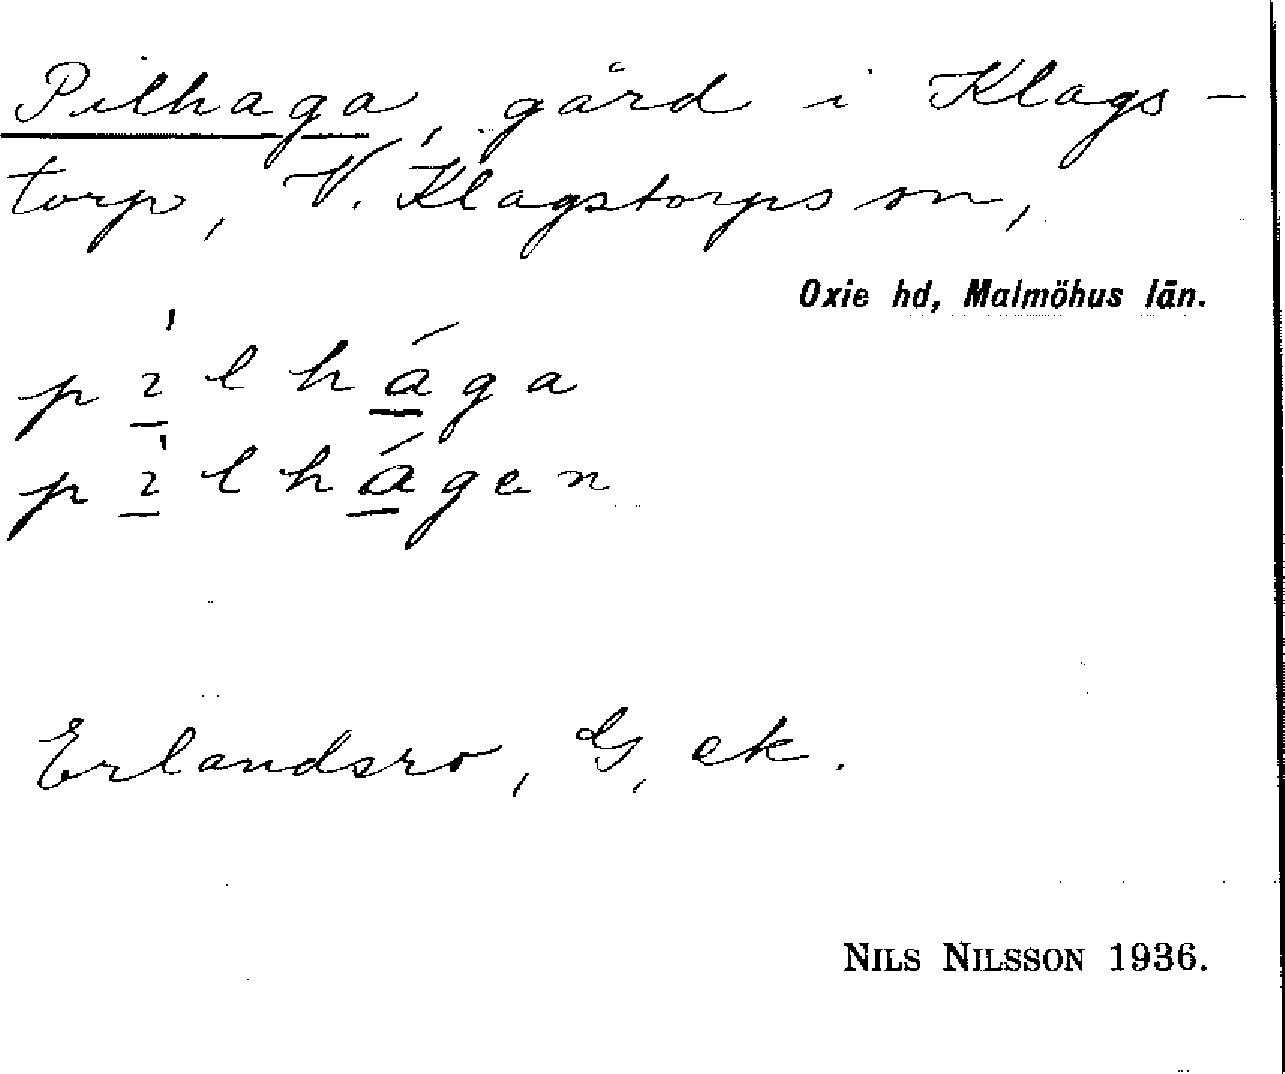 Pilhaga, gård i Klags-
torp, V. Klagstorps sn,
Oxie hd, Malmöhus län.
pı̲́lhá̲ga
pı̲́lhá̲gen
Erlandsro, G, ek.
NILS NILSSON 1936.